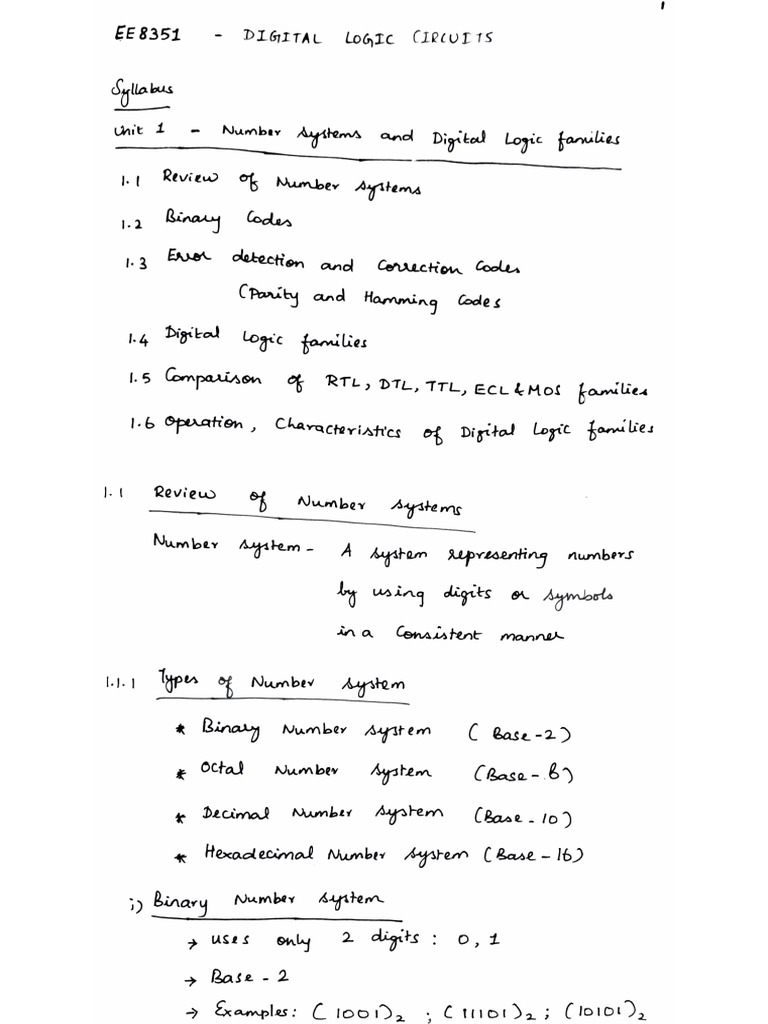 1
EE8351 - DIGITAL LOGIC CIRCUITS
Syllabus
Unit 1 - Number Systems and Digital Logic families
1.1 Review of Number Systems
1.2 Binary Codes
1.3 Error detection and Correction Codes
(Parity and Hamming Codes
1.4 Digital Logic families
1.5 Comparison of RTL, DTL, TTL, ECL & MOS families
1.6 Operation, Characteristics of Digital Logic families
1.1 Review of Number Systems
Number System - A system representing numbers
by using digits or symbols
in a Consistent manner
1.1.1 Types of Number System
* Binary Number System (Base-2)
* Octal Number System (Base-8)
* Decimal Number System (Base-10)
* Hexadecimal Number System (Base-16)
i) Binary Number System
→ uses only 2 digits: 0, 1
→ Base - 2
→ Examples: (1001)₂ ; (11101)₂ ; (10101)₂